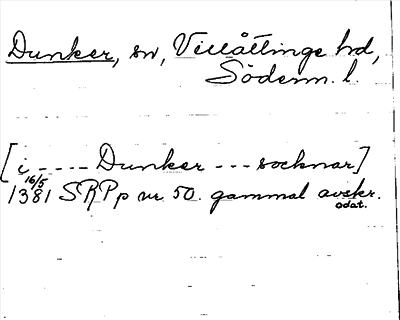 Dunker, sn, Villåttinge hd,
Söderm. l.
[i - - - - Dunker - - - socknar]
16/5
1381 SRPp nr 50. gammal avskr.
odat.